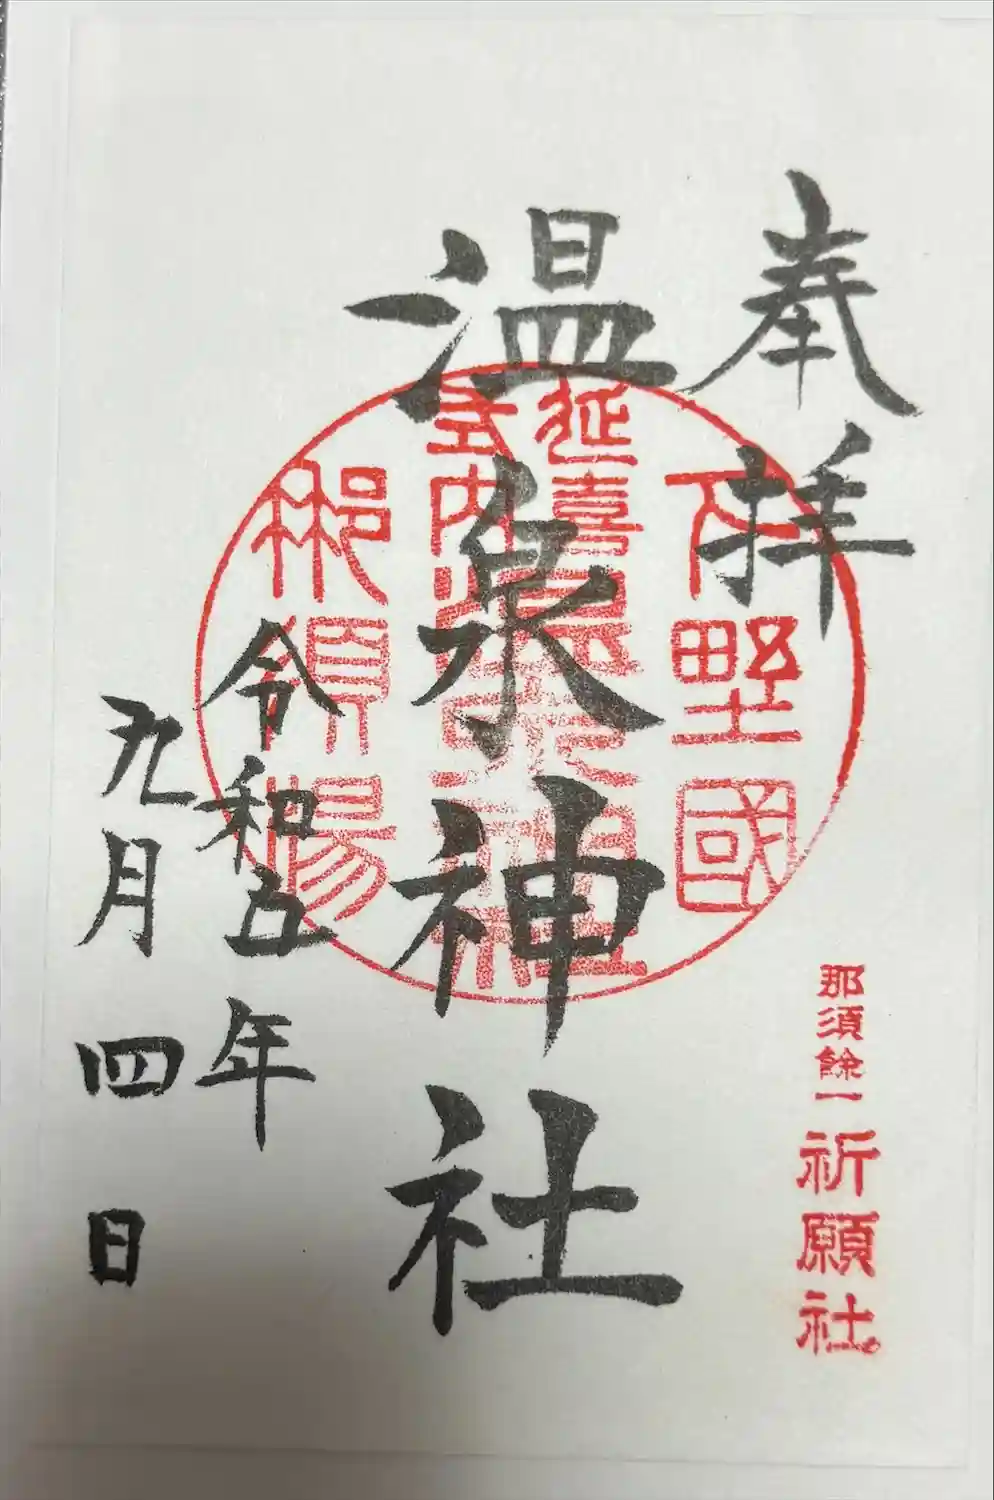 奉拝
下野國
那須餘一
祈願社
温泉神社
延喜
式内
温泉神社
那須湯
令和五年
九月四日